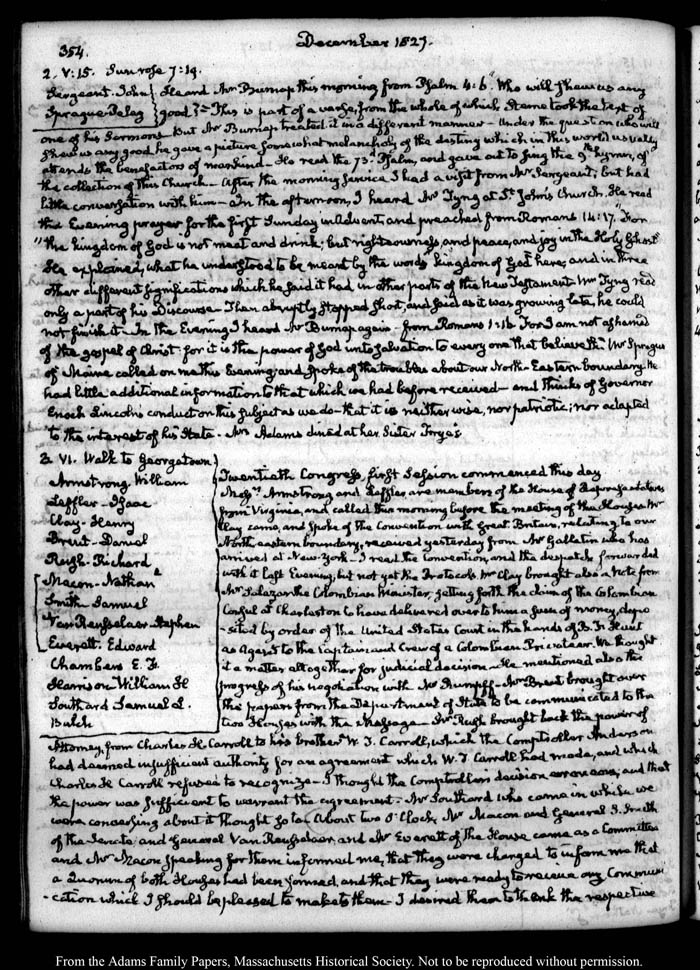 354.
December 1827.
2. V:15. Sun rose 7:19.
Sergeant. John } Heard Mr Burnap this morning from Psalm 4:6. "Who will shew us any
Sprague Peleg } good?"— This is part of a verse, from the whole of which Sterne took the text of
one of his Sermons But Mr Burnap treated it in a different manner— Under the question who will
shew us any good, he gave a picture somewhat melancholy of the destiny which in this world usually
attends the benefactors of mankind— He read the 73d Psalm, and gave out to sing the 9th hymn, of
the collection of this Church— After the morning service I had a visit from Mr Sergeant, but had
little conversation with him— In the afternoon, I heard Mr Tyng at St John's Church. He read
the Evening prayer for the first Sunday in Advent and preached from Romans 14:17. "For
"the kingdom of God is not meat and drink; but righteousness, and peace, and joy in the Holy Ghost"
He explained, what he understood to be meant by the words "kingdom of God" here; and in three
other different significations which he said it had in other parts of the New Testament. Mr Tyng read
only a part of his Discourse— Then abruptly stopped short, and said as it was growing late, he could
not finish it— In the Evening I heard Mr Burnap again— from Romans 1:16. For I am not ashamed
of the gospel of Christ: for it is the power of God unto salvation to every one that believeth. Mr Sprague
of Maine called on me this Evening and spoke of the troubles about our North-Eastern boundary. He
had little additional information to that which we had before received— and thinks of Governor
Enoch Lincoln's conduct on this subject as we do— that it is neither wise, nor patriotic; nor adapted
to the interest of his State. Mrs Adams dined at her Sister Frye's.
3. VI. Walk to Georgetown.
Armstrong. William
Leffler- Isaac
Clay- Henry
Brent- Daniel
Rush- Richard
Macon- Nathan
Smith Samuel
Van Rensselaer Stephen
Everett. Edward
Chambers E. F.
Harrison William H
Southard Samuel L.
Balch
Twentieth Congress, first Session commenced this day
Messrs Armstrong and Leffler are members of the House of Representatives
from Virginia, and called this morning before the meeting of the Houses Mr
Clay came, and spoke of the Convention with Great Britain, relating to our
North eastern boundary, received yesterday from Mr Gallatin who has
arrived at New-York— I read the Convention, and the despatch forwarded
with it last Evening, but not yet the Protocols. Mr Clay brought also a Note from
Mr Salazar the Colombian Minister, setting forth the claim of the Colombian
Consul at Charleston to have delivered over to him a sum of money, depo
-sited by order of the United States Court in the hands of B. F. Hunt
as Agent to the Captain and Crew of a Colombian Privateer. We thought
it a matter altogether for judicial decision— He mentioned also the
progress of his negotiation with Mr Rumpff— Mr Brent brought over
the papers from the Department of State to be communicated to the
two Houses with the Message— Mr Rush brought back the power of
Attorney, from Charles H. Carroll to his brother W. T. Carroll, which the Comptroller Anderson
had deemed insufficient authority for an agreement which W. T. Carroll had made, and which
Charles H. Carroll refuses to recognize— I thought the Comptroller's decision erroneous, and that
the power was sufficient to warrant the agreement— Mr Southard who came in while we
were conversing about it thought so too. About two O'Clock, Mr Macon and General S. Smith
of the Senate and General Van Rensselaer and Mr Everett of the House came as a Committee
and Mr Macon speaking for them informed me, that they were charged to inform me that
a Quorum of both Houses had been formed, and that they were ready to receive any Communi
-cation which I should be pleased to make to them— I desired them to thank the respective
From the Adams Family Papers, Massachusetts Historical Society. Not to be reproduced without permission.